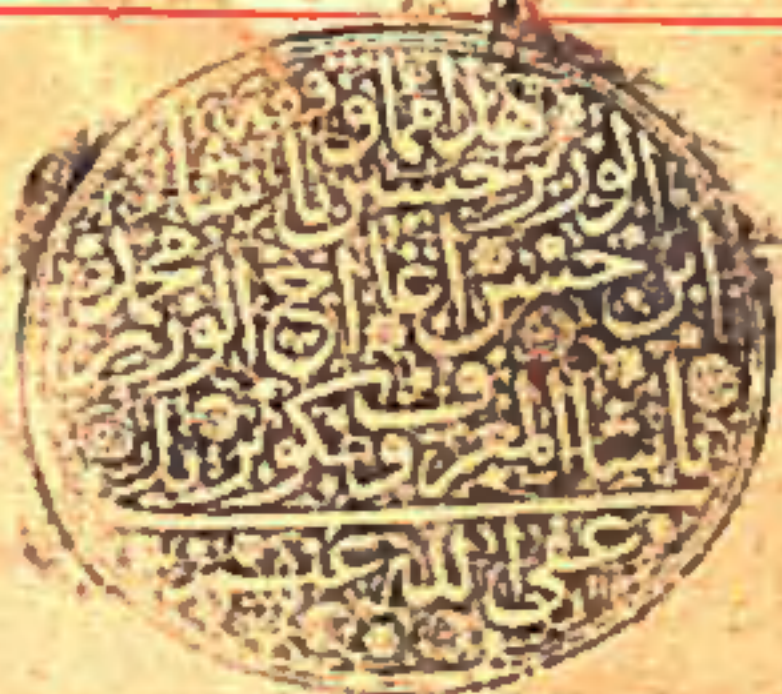 هذا مما وقف
الوزير حسين باشا
بن حسن اغا اخ الوزير محمد
باشا المعروف بكوبريلى
عفى الله عنهم